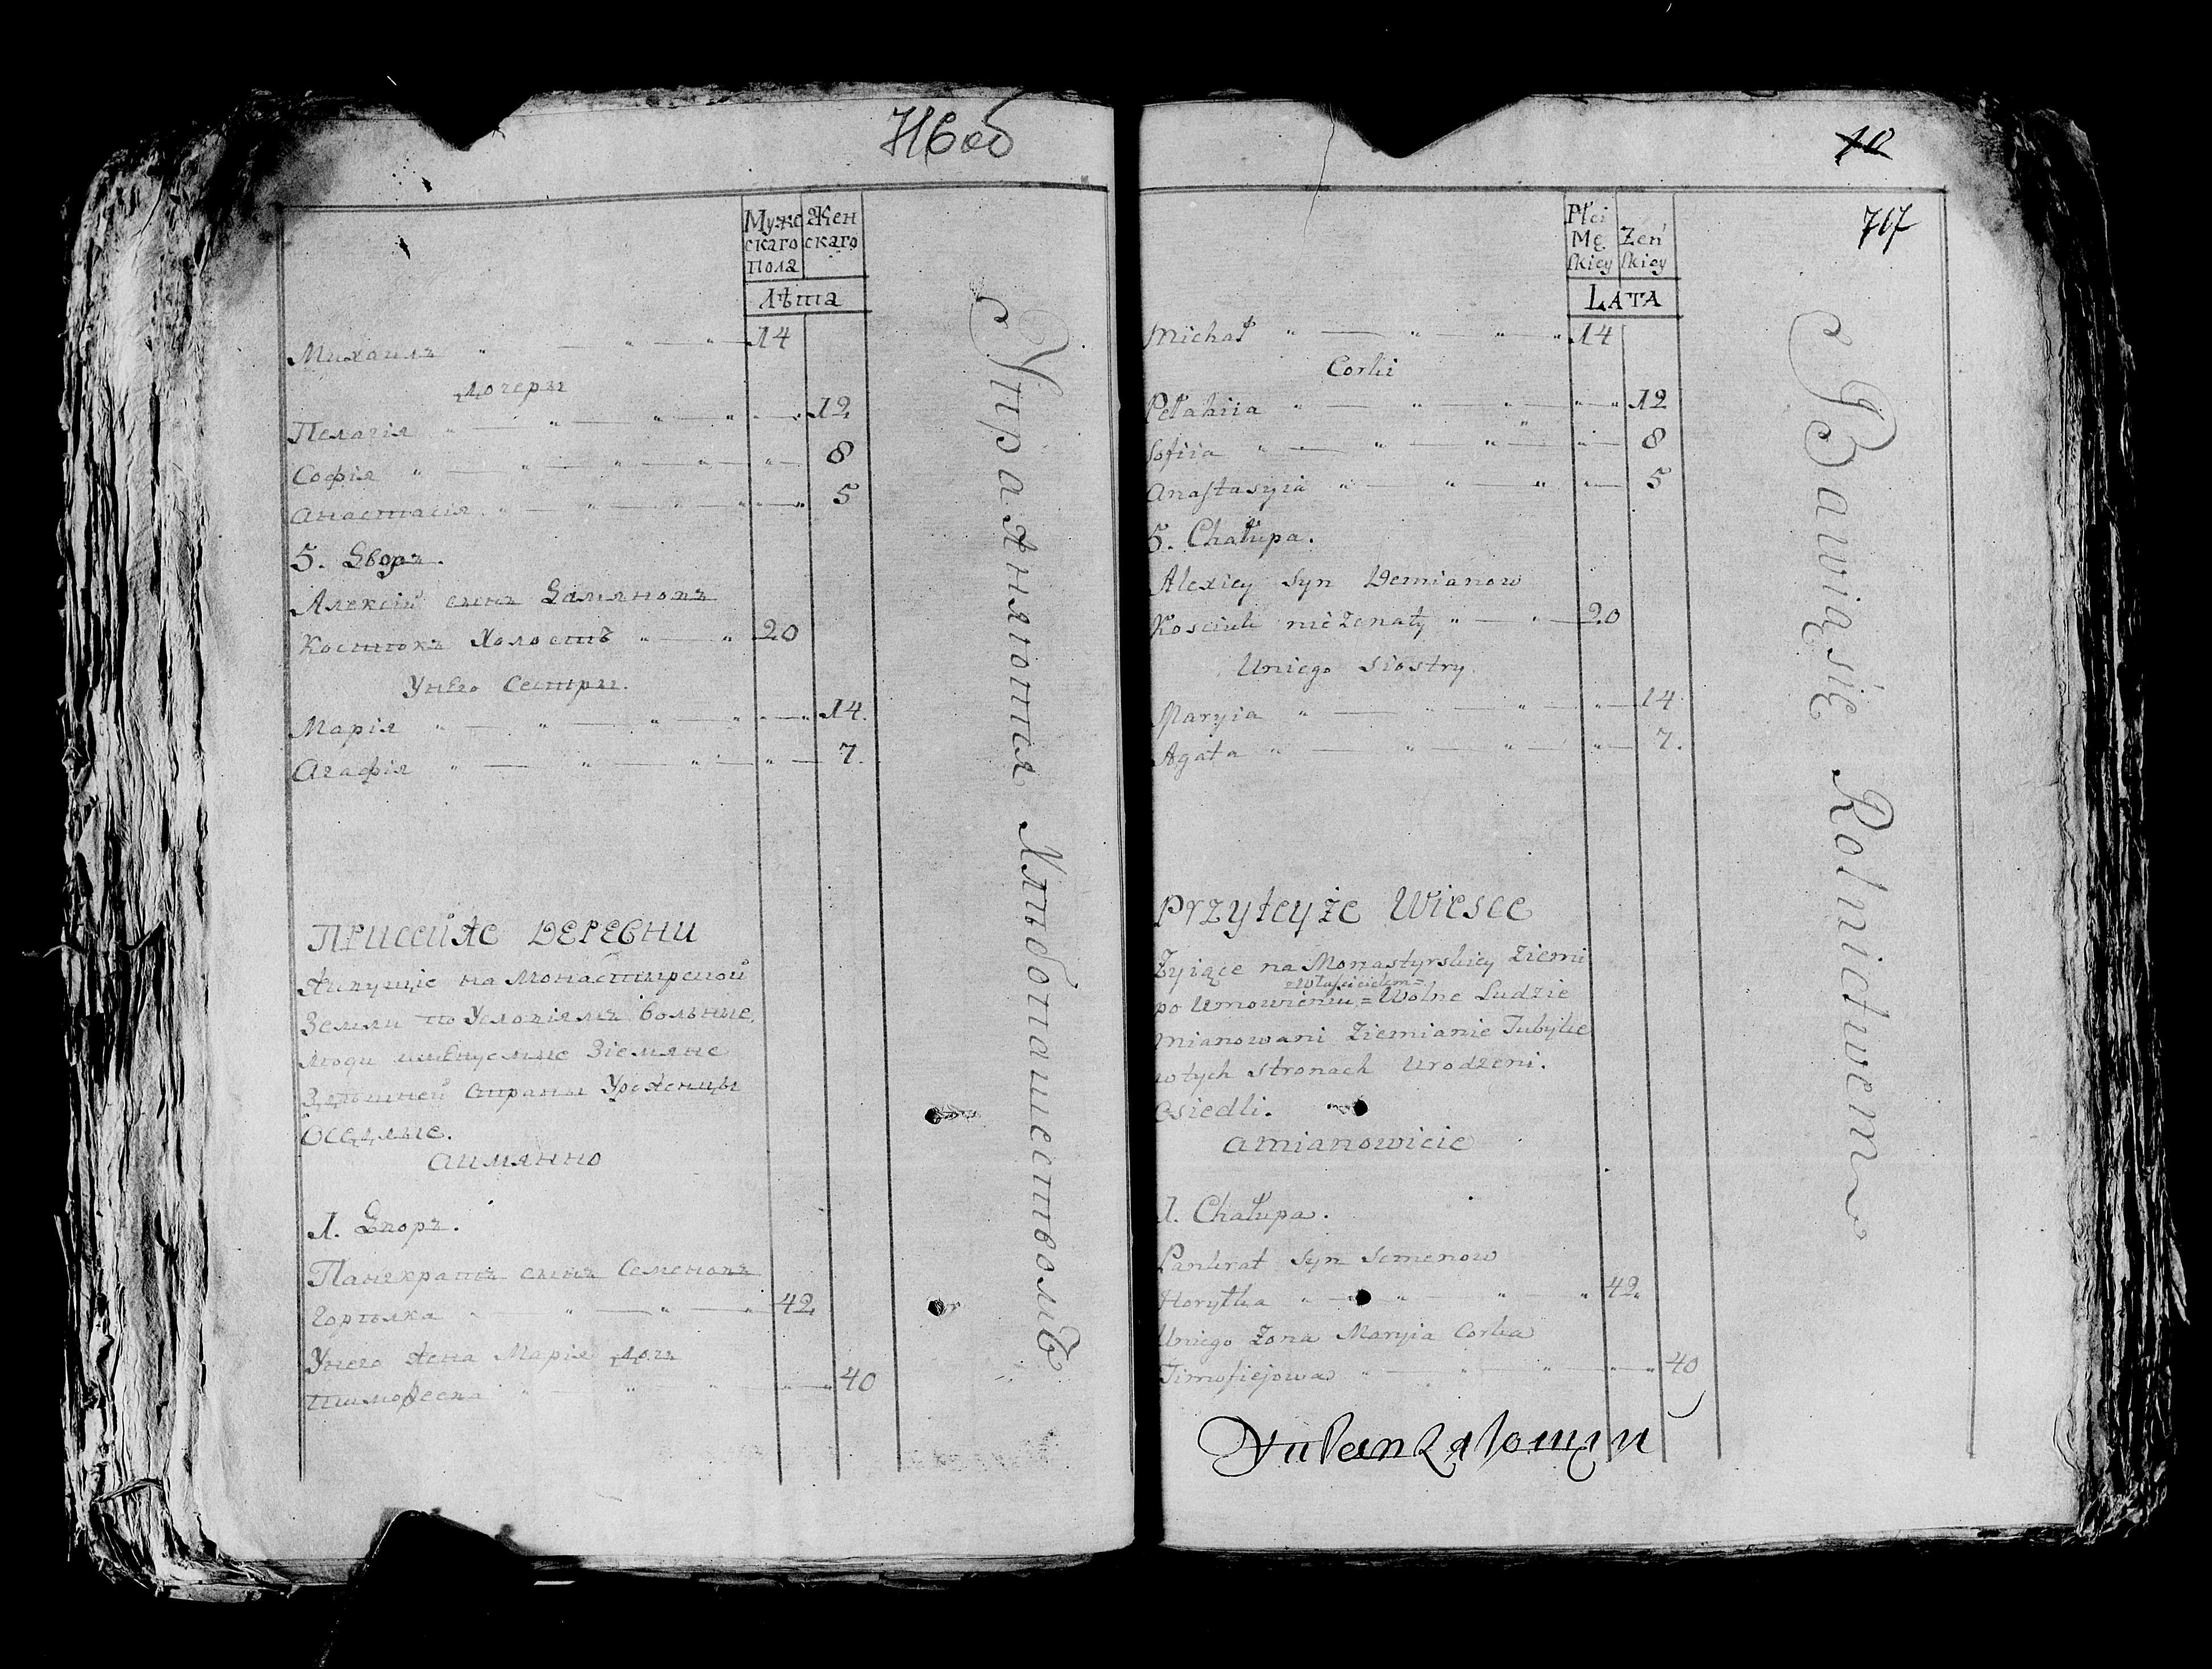 716 об
Муже Жен
скаго скаго
пола
Лѣта
Михаилъ 14
Дочери
Пелагія 12
Софія 8
Анастасія 5
5. Дворъ.
Алексій сынъ Дамяновъ
Костюкъ Холостъ 20
Унего Сестры.
Марія 14.
Агафія 7.
ПРИСЕЙЖЕ ДЕРЕВНИ
Живущіе на Монастырской
Земли по Условіямъ вольные
люди имѣнуемые Зіемяне
Здѣшней страны Уроженцы
Оседлые.
аимянно
1. Дворъ.
Панкратъ сынъ Семеновъ
Горълка 42.
Унего жена Марія дочь
Тимофеева 40
Упражняются Хлѣбопашествомъ
10
717
Płci
Mę Żeń
skiey skiey
LATA
Michał 14
Corki
Pełahiia 12
Sofiia 8
Anastasyia 5
5. Chałupa.
Alexiey syn Demianow
Kosciuk nieżenaty 20
Uniego siostry
Maryia 14
Agata 7.
Przyteyże Wiesce
Żyiące na Monastyrskiey Ziemi
=właścicielem=
po Umowieniu = Wolne Ludzie
mianowani Ziemianie Tubylce
wtych stronach Urodzeni.
Osiedli.
amianowicie
1. Chałupa.
Pankrat syn Semenow
Horyłka 42.
Uniego Żona Maryia Corka
Timofiejowa 40
Bawiąsię Rolnictwem